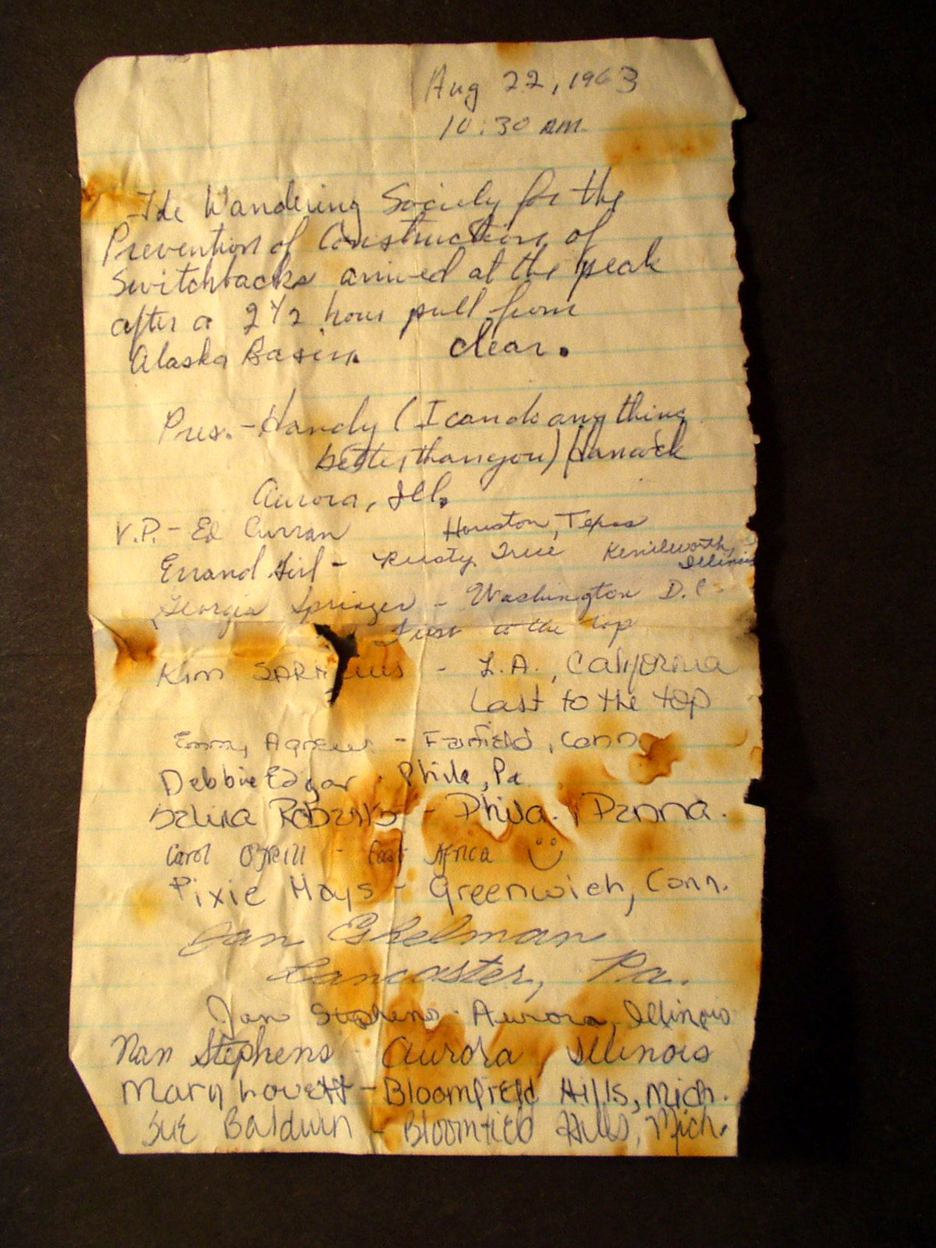 Aug 22, 1963
10:30 AM.
The Wandering Society for the
Prevention of Construction of
Switchbacks arrived at the peak
after a 2 1/2 hour pull from
Alaska Basin. clear.
Pres. - Handy (I can do anything
better than you) Hancock
Aurora, Ill.
V.P. - Ed Curran Houston, Texas
Errand Girl - Rusty True Kenilworth,
Illinois
Georgia Springer - Washington D.C.
First to the top
Kim - L.A., California
Last to the top
Emmy - Fairfield, Conn
Debbie Edgar - Phila, Pa
Selina Roberts - Phila., Penna.
Carol O'Neill - East Africa
Pixie Hays - Greenwich, Conn.
Jan Eshelman
Lancaster, Pa.
Jan Stephens - Aurora, Illinois
Nan Stephens - Aurora Illinois
Mary Lovett - Bloomfield Hills, Mich.
Sue Baldwin - Bloomfield Hills, Mich.